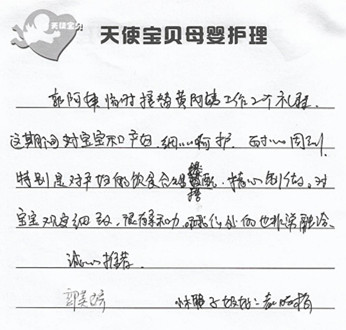 天使宝贝
天使宝贝母婴护理
郭阿姨临时接替黄阿姨工作2个礼拜.
这期间对宝宝和产妇,细心呵护,耐心周到.
特别是对产妇的饮食合理搭配,精心制作。对
宝宝观察细致,很亲和力.和家人处的也非常融洽.
诚心推荐.